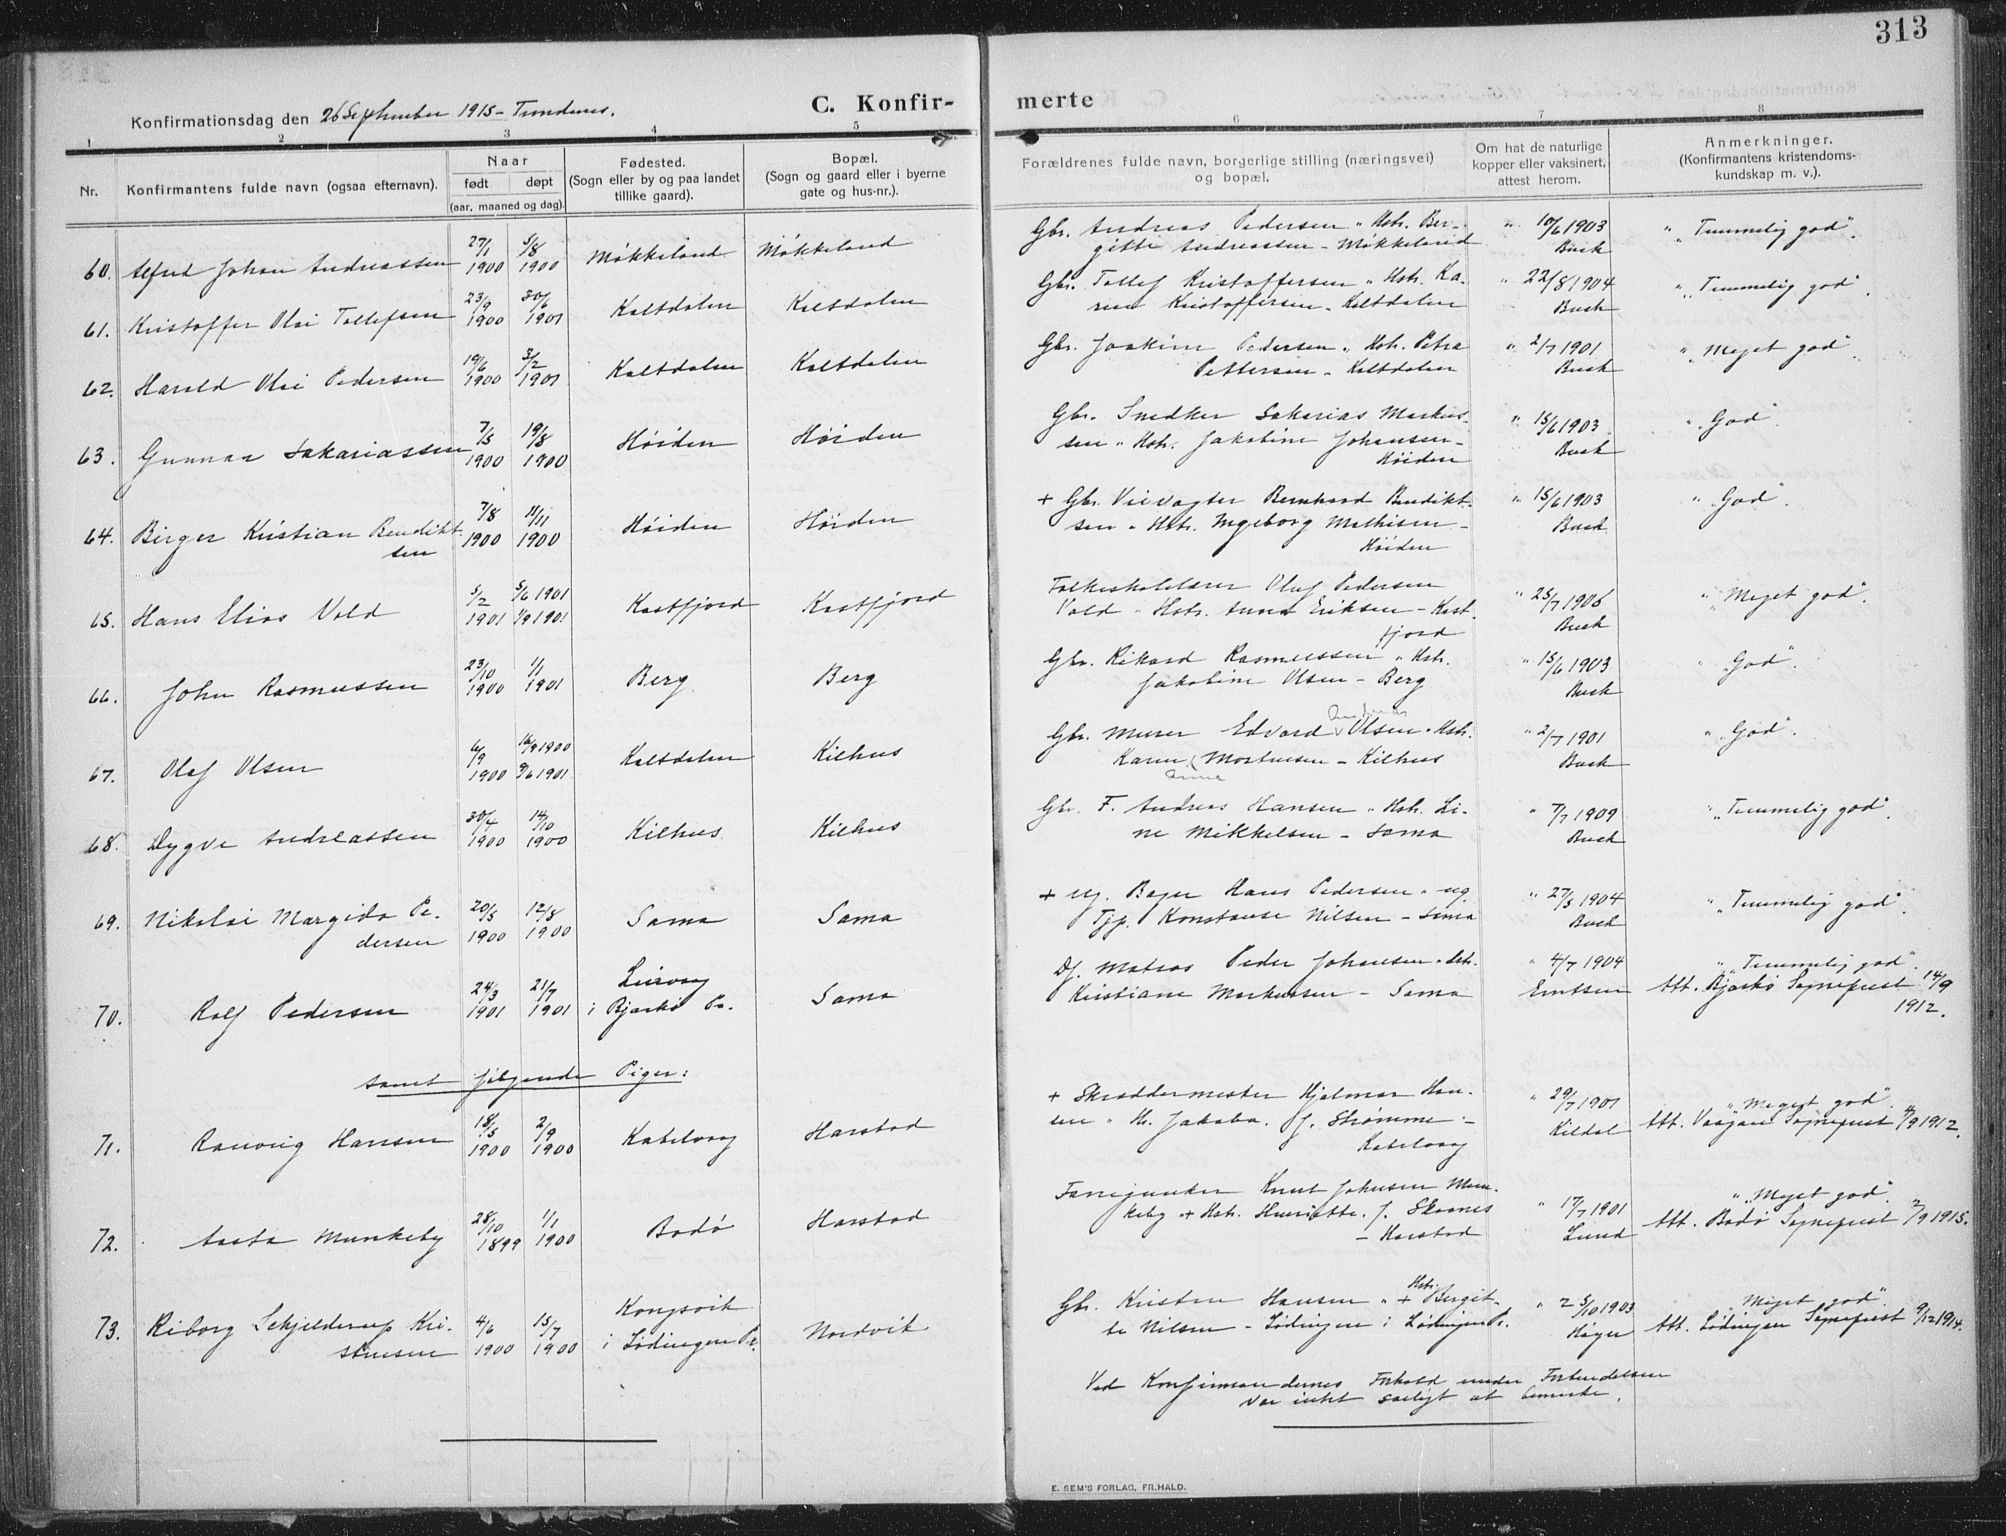 313
Konfirmationsdag den 26 September 1915 - Trondenes.
C. Konfir-
merte
1 2 3 4 5 6 7 8
Nr.
Konfirmantens fulde navn (ogsaa efternavn).
Naar
født døpt
(aar, maaned og dag).
Fødested.
(Sogn eller by og paa landet
tillike gaard).
Bopæl.
(Sogn og gaard eller i byerne
gate og hus-nr.).
Forældrenes fulde navn, borgerlige stilling (næringsvei)
og bopæl.
Om hat de naturlige
kopper eller vaksinert,
attest herom.
Anmerkninger.
(Konfirmantens kristendoms-
kundskap m. v.).
60. Alfred Johan Andreassen 27/1 1900 5/8 1900 Møkkeland Møkkeland
Gbr. Andreas Pedersen " Hstr. Ber-
gitte Andreassen - Møkkeland
" 10/6 1903
Buck
" "Temmelig god".
61. Kristoffer Olai Tollefsen 23/9 1900 30/6 1901 Kaltdalen Kaltdalen
Gbr. Tollef Kristoffersen " Hstr. Ka-
ren Kristoffersen - Kaltdalen
" 22/8 1904
Buck
" "Temmelig god".
62. Harald Olai Pedersen 19/6 1900 3/2 1901 Kaltdalen Kaltdalen
Gbr. Joakim Pedersen " Hstr. Petra
Pettersen - Kaltdalen
" 2/7 1901
Buck
" "Meget god".
63. Gunnar Sakariassen 7/5 1900 19/8 1900 Høiden Høiden
Gbr. Snedker Sakarias Markus-
sen " Hstr. Jakobine Johansen -
Høiden
" 15/6 1903
Buck
" "God".
64. Birger Kristian Bendikt- 7/8 1900 11/11 1900 Høiden Høiden
sen
+ Gbr. Veivogter Bernhard Bendikt-
sen " Hstr. Ingeborg Mathisen -
Høiden
" 15/6 1903
Buck
" "God".
65. Hans Elias Vold 5/2 1901 5/6 1901 1/9 1901 Kastfjord Kastfjord
Folkeskolelærer Oluf Pedersen
Vold " Hstr. Anna Eriksen - Kast-
fjord
" 25/7 1906
Buck
" "Meget god".
66. John Rasmussen 23/10 1900 1/1 1901 Berg Berg
Gbr. Rikard Rasmussen " Hstr.
Jakobine Olsen - Berg
" 15/6 1903
Buck
" "God".
67. Olaf Olsen 6/9 1900 16/9 1900 9/6 1901 Kaltdalen Kilhus
Gbr. Murer Edvard Olsen " Hstr.
Karen Mortensen - Kilhus
Anne
" 2/7 1901
Buck
" "God".
68. Dygve Andreassen 30/4 1900 14/10 1900 Kilhus Kilhus
Gbr. F. Andreas Hansen " Hstr. Li-
ne Mikkelsen - Sama
" 7/7 1909
Buck
" "Temmelig god".
69. Nikolai Margido Pe- 20/5 1900 12/8 1900 Sama Sama
dersen
+ Ug. Bager Hans Pedersen " ug.
Tjp. Konstanse Nilsen - Sama
" 27/5 1904
Buck
" "Temmelig god".
70. Rolf Pedersen 24/3 1901 21/7 1901 Leirvaag Sama
i Bjarkø Pr.
Df. Matros Peder Johansen " Hstr.
Kristiane Markussen - Sama
" 4/7 1904
Erntsen
" "Temmelig god".
Att. Bjarkø Sogneprest 14/9
1912.
samt følgende Piger:
71. Ranveig Hansen 18/5 1900 2/9 1900 Kabelvaag Harstad
+ Skræddermester Hjalmar Han-
sen " H. Jakoba. f. Strømme -
Kabelvaag
" 29/7 1901
Kildal
" "Meget god".
Att. Vaagan Sogneprest 4/9 1912.
72. Aasta Munkeby 28/10 1899 1/1 1900 Bodø Harstad
Fanejunker Knut Johnsen Mun-
keby + Hstr. Henriette. f. Skaanes
- Harstad
" 17/7 1901
Lund
" "Meget god".
Att. Bodø Sogneprest 2/9 1915.
73. Riborg Schjelderup Kri- 4/6 1900 15/7 1900 Kongsvik Nordvik
stensen
i Lødingen Pr.
Gbr. Kristen Hansen " + Hstr. Bergit-
te Nilsen - Lødingen i Lødingen Pr.
" 25/10 1903
Høyer
" "Meget god".
Att. Lødingen Sogneprest 9/12 1914.
Ved Konfirmandernes Forhold under Forberedelsen
var intet særligt at bemerke.
E. SEM'S FORLAG, FR.HALD.